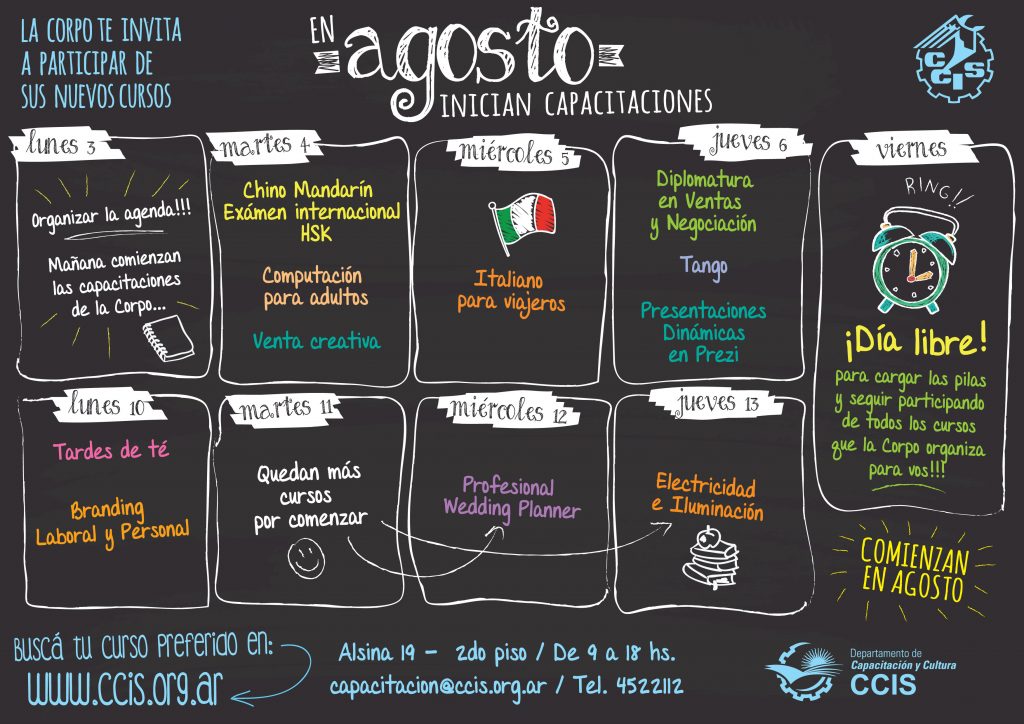 LA CORPO TE INVITA
A PARTICIPAR DE
SUS NUEVOS CURSOS
EN
agosto
INICIAN CAPACITACIONES
CCIS
lunes 3
Organizar la agenda!!!
Mañana comienzan
las capacitaciones
de la Corpo...
martes 4
Chino Mandarín
Exámen internacional
HSK
Computación
para adultos
Venta creativa
miércoles 5
Italiano
para viajeros
jueves 6
Diplomatura
en Ventas
y Negociación
Tango
Presentaciones
Dinámicas
en Prezi
viernes
RING!!
¡Día libre!
para cargar las pilas
y seguir participando
de todos los cursos
que la Corpo organiza
para vos!!!
lunes 10
Tardes de té
Branding
Laboral y Personal
martes 11
Quedan más
cursos
por comenzar
miércoles 12
Profesional
Wedding Planner
jueves 13
Electricidad
e Iluminación
COMIENZAN
EN AGOSTO
Buscá tu curso preferido en:
www.ccis.org.ar
Alsina 19 - 2do piso / De 9 a 18 hs.
capacitacion@ccis.org.ar / Tel. 4522112
Departamento de
Capacitación y Cultura
CCIS